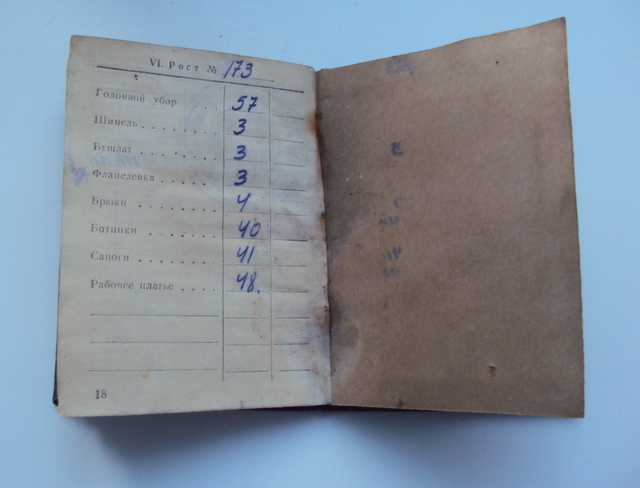 VI. Рост № 173
Головной убор . . 57
Шинель . . . . . . . 3
Бушлат . . . . . . . 3
Фланелевка . . . . . 3
Брюки . . . . . . . . 4
Ботинки . . . . . . . 40
Сапоги . . . . . . . 41
Рабочее платье . . . . 48.
18